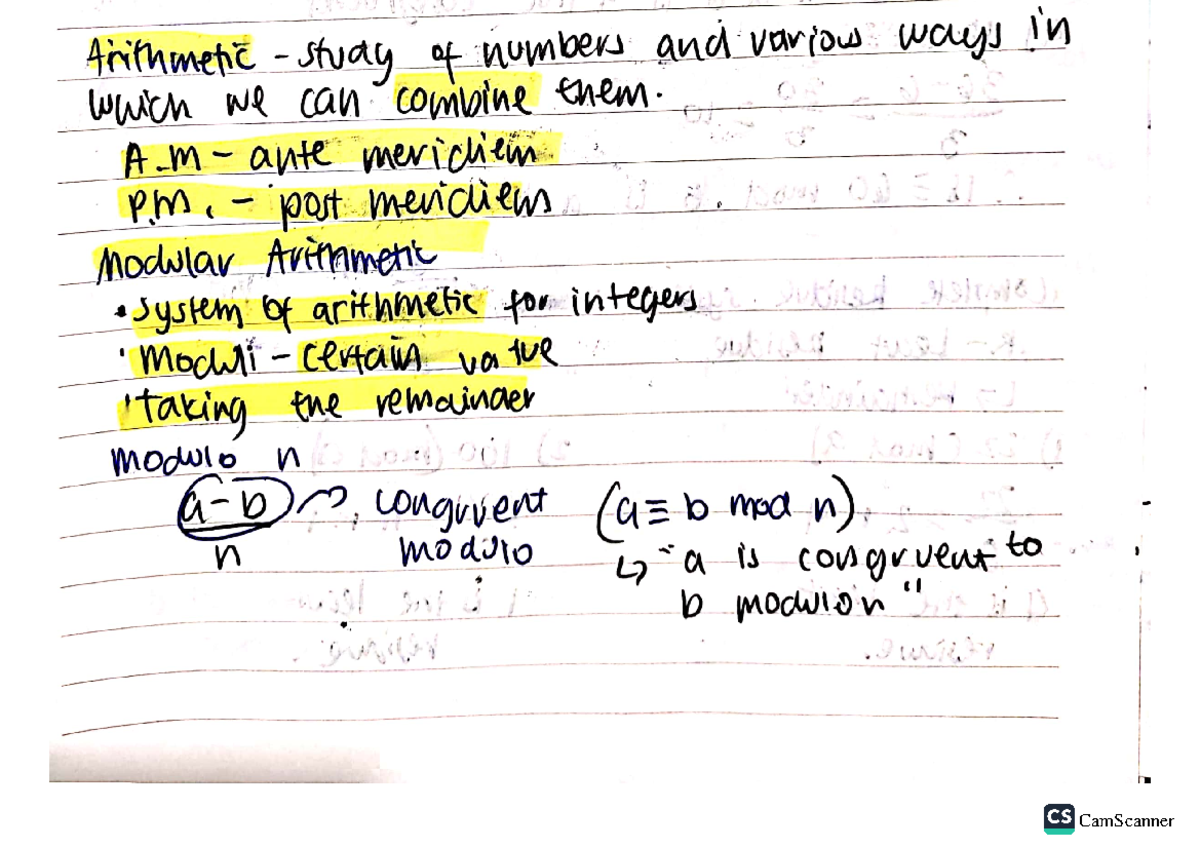 Arithmetic - study of numbers and various ways in
which we can combine them.
A.M - ante meridiem
P.M. - post meridiem
Modular Arithmetic
• System of arithmetic for integers
• Moduli - certain value
• taking the remainder
modulo n
a - b congruent (a ≡ b mod n)
n modulo ↳ "a is congruent to
b modulo n"
CS CamScanner